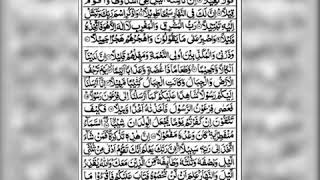 قَوْلًا ثَقِيلًا إِنَّ نَاشِئَةَ الَّيْلِ هِيَ أَشَدُّ وَطْأً وَأَقْوَمُ
قِيلًا إِنَّ لَكَ فِي النَّهَارِ سَبْحًا طَوِيلًا وَاذْكُرِ اسْمَ رَبِّكَ وَتَبَتَّلْ
إِلَيْهِ تَبْتِيلًا رَبُّ الْمَشْرِقِ وَالْمَغْرِبِ لَا إِلَٰهَ إِلَّا هُوَ فَاتَّخِذْهُ
وَكِيلًا وَاصْبِرْ عَلَىٰ مَا يَقُولُونَ وَاهْجُرْهُمْ هَجْرًا جَمِيلًا
وَذَرْنِي وَالْمُكَذِّبِينَ أُولِي النَّعْمَةِ وَمَهِّلْهُمْ قَلِيلًا إِنَّ لَدَيْنَا
أَنْكَالًا وَجَحِيمًا وَطَعَامًا ذَا غُصَّةٍ وَعَذَابًا أَلِيمًا يَوْمَ
تَرْجُفُ الْأَرْضُ وَالْجِبَالُ وَكَانَتِ الْجِبَالُ كَثِيبًا مَهِيلًا إِنَّا أَرْسَلْنَا
إِلَيْكُمْ رَسُولًا شَاهِدًا عَلَيْكُمْ كَمَا أَرْسَلْنَا إِلَىٰ فِرْعَوْنَ رَسُولًا
فَعَصَىٰ فِرْعَوْنُ الرَّسُولَ فَأَخَذْنَاهُ أَخْذًا وَبِيلًا فَكَيْفَ
تَتَّقُونَ إِنْ كَفَرْتُمْ يَوْمًا يَجْعَلُ الْوِلْدَانَ شِيبًا السَّمَاءُ
مُنْفَطِرٌ بِهِ كَانَ وَعْدُهُ مَفْعُولًا إِنَّ هَٰذِهِ تَذْكِرَةٌ فَمَنْ شَاءَ
اتَّخَذَ إِلَىٰ رَبِّهِ سَبِيلًا إِنَّ رَبَّكَ يَعْلَمُ أَنَّكَ تَقُومُ أَدْنَىٰ مِنْ ثُلُثَيِ
الَّيْلِ وَنِصْفَهُ وَثُلُثَهُ وَطَائِفَةٌ مِنَ الَّذِينَ مَعَكَ وَاللَّهُ يُقَدِّرُ
الَّيْلَ وَالنَّهَارَ عَلِمَ أَنْ لَنْ تُحْصُوهُ فَتَابَ عَلَيْكُمْ فَاقْرَءُوا مَا